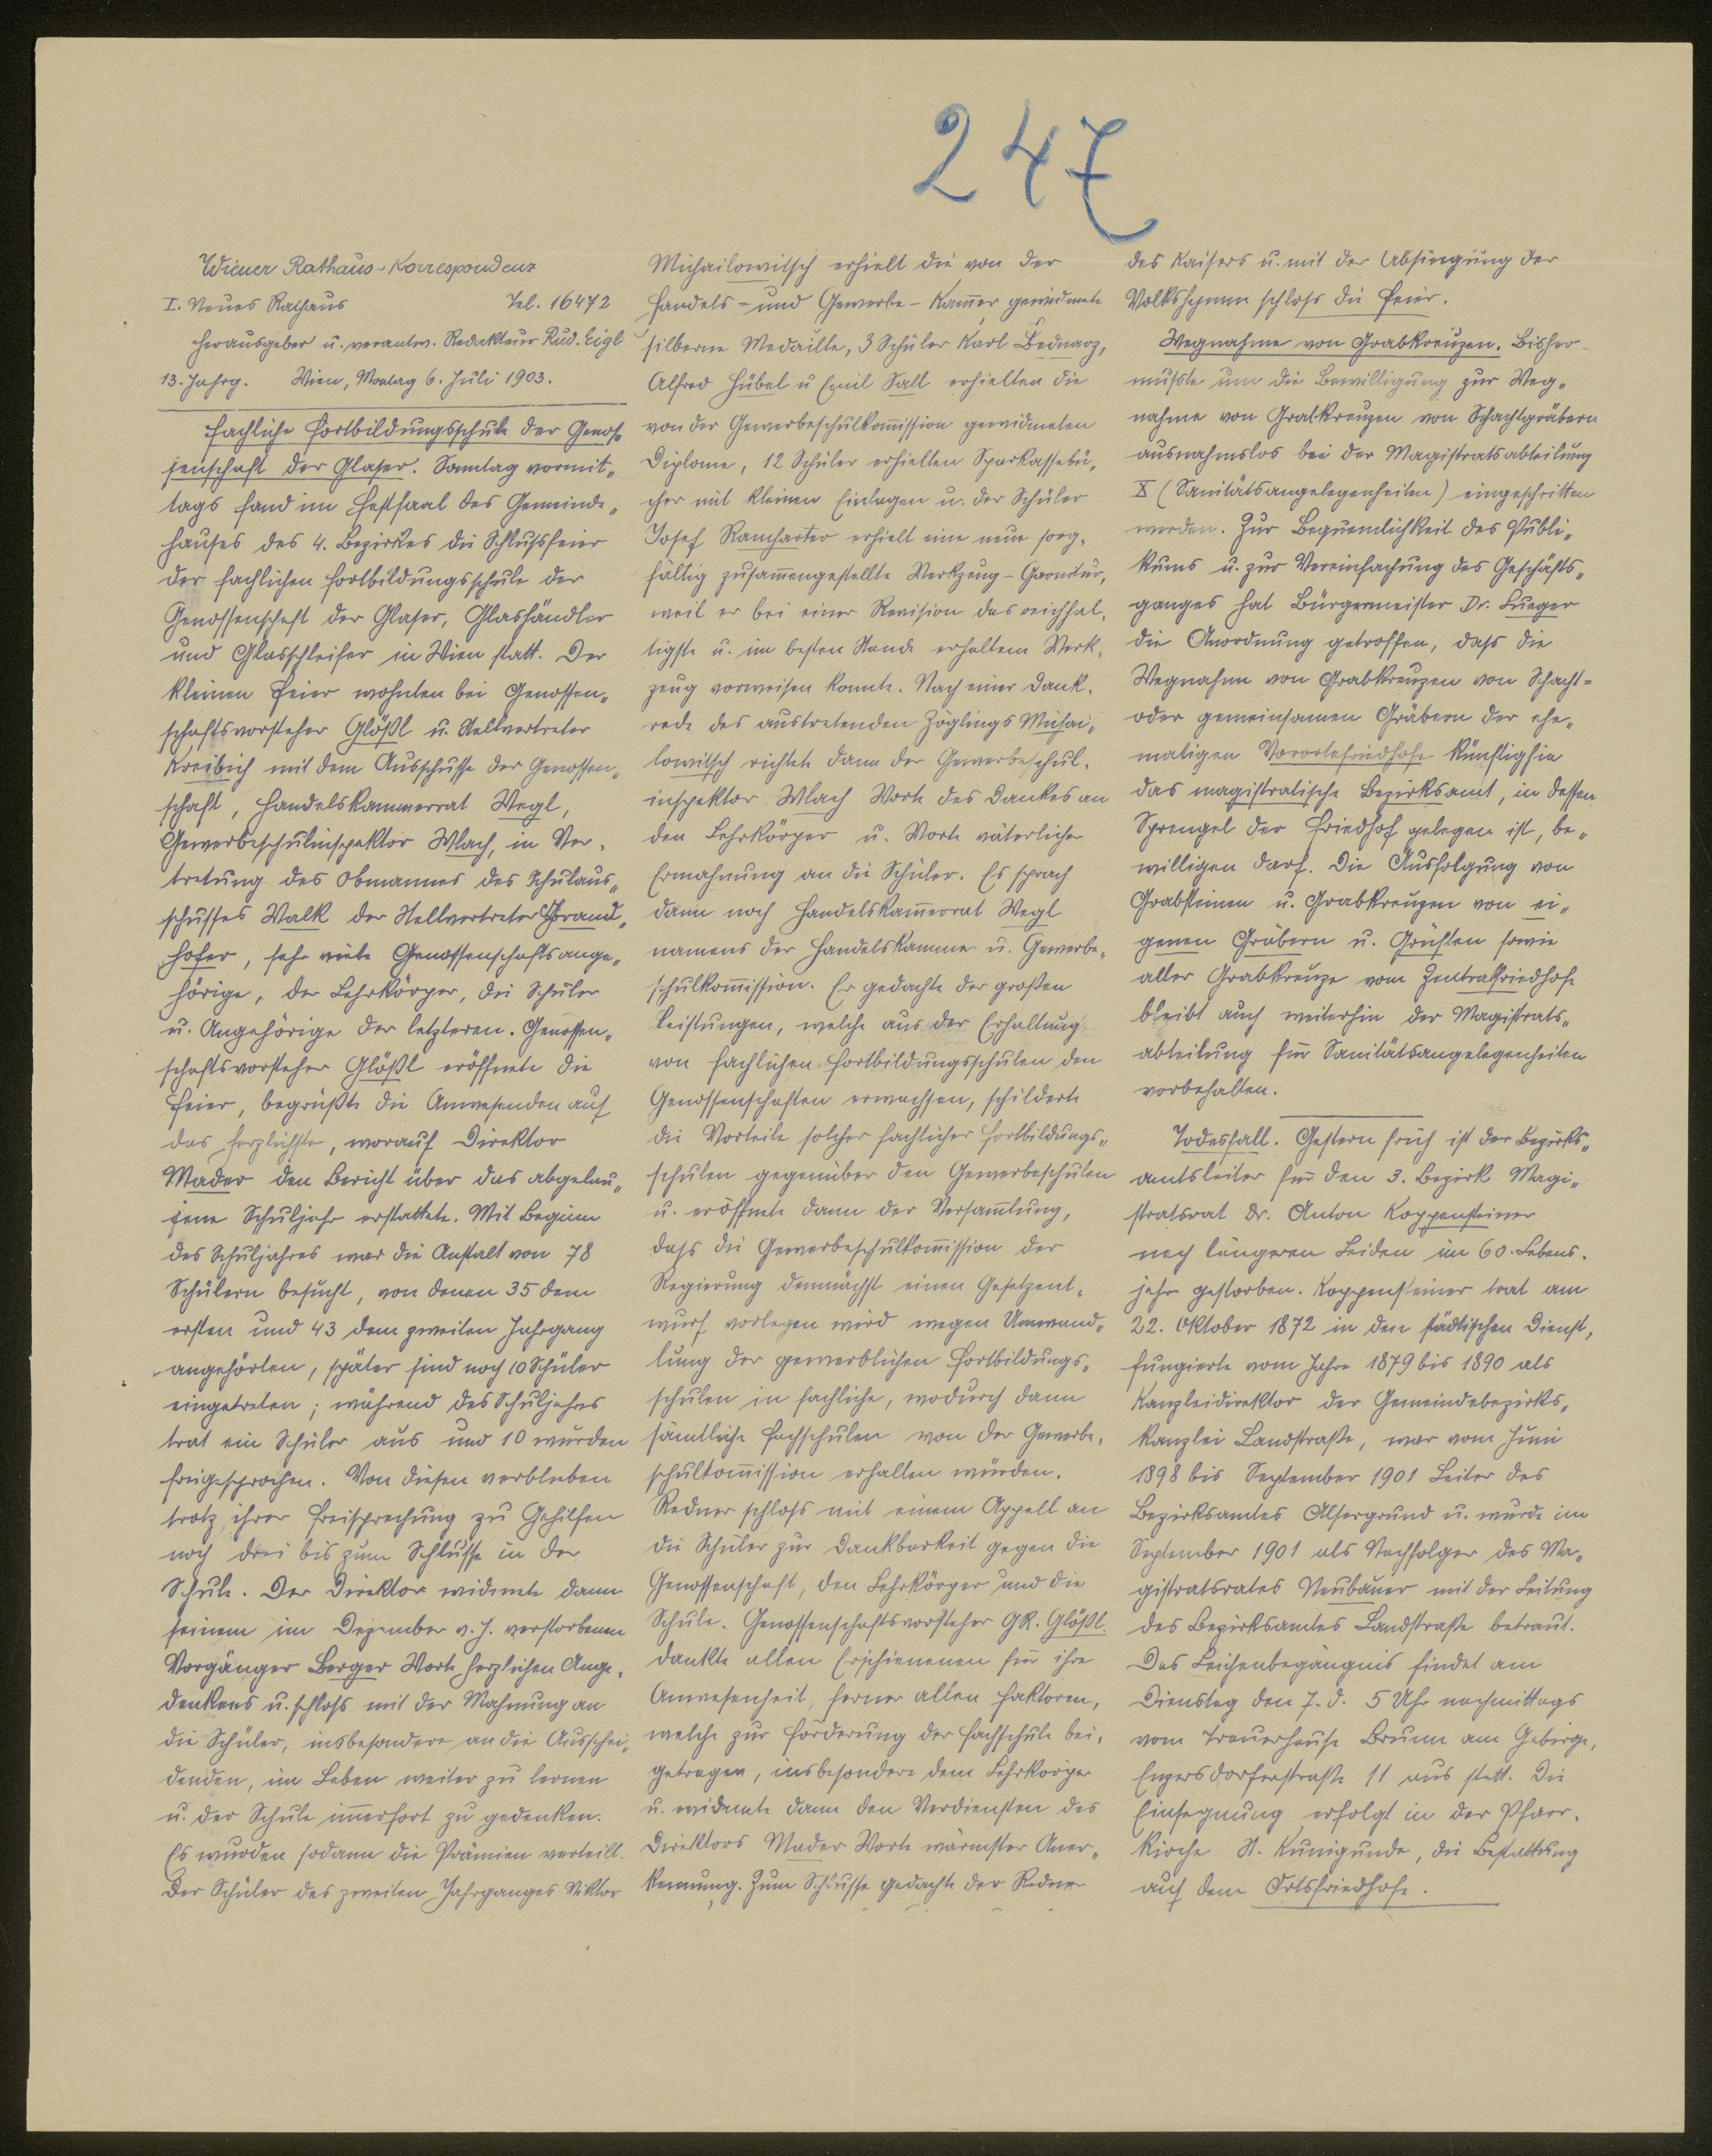 247
Wiener Rathaus-Korrespondenz
I. Neues Rathaus Tel. 16472
Herausgeber u. verantw. Redakteur Rud. Eigl
13. Jahrg. Wien, Montag 6. Juli 1903.
Fachliche Fortbildungsschule der Genos-
senschaft der Glaser. Sonntag vormit-
tags fand im Festsaal des Gemeinde-
hauses des 4. Bezirkes die Schlußfeier
der fachlichen Fortbildungsschule der
Genossenschaft der Glaser, Glashändler
und Glasschleifer in Wien statt. Der
kleinen Feier wohnten bei Genossen-
schaftsvorsteher Glößl u. Stellvertreter
Kreibich mit dem Ausschusse der Genossen-
schaft, Handelskammerrat Wegl,
Gewerbeschulinspektor Wlach, in Ver-
tretung des Obmannes des Schulaus-
schusses Walk der Stellvertreter Brand-
hofer, sehr viele Genossenschaftsange-
hörige, der Lehrkörper, die Schüler
u. Angehörige der letzteren. Genossen-
schaftsvorsteher Glößl eröffnete die
Feier, begrüßte die Anwesenden auf
das herzlichste, worauf Direktor
Mader den Bericht über das abgelau-
fene Schuljahr erstattete. Mit Beginn
des Schuljahres war die Anstalt von 78
Schülern besucht, von denen 35 dem
ersten und 43 dem zweiten Jahrgang
angehörten, später sind noch 10 Schüler
eingetreten; während des Schuljahres
trat ein Schüler aus und 10 wurden
freigesprochen. Von diesen verblieben
trotz ihrer Freisprechung zu Gehilfen
noch drei bis zum Schlusse in der
Schule. Der Direktor widmete dann
seinem im Dezember v. J. verstorbenen
Vorgänger Berger Worte herzlichen Ange-
denkens u. schloß mit der Mahnung an
die Schüler, insbesondere an die Ausschei-
denden, im Leben weiter zu lernen
u. der Schule im̅erfort zu gedenken.
Es wurden sodann die Prämien verteilt.
Der Schüler des zweiten Jahrganges Viktor
Michailowitsch erhielt die von der
Handels- und Gewerbe-Kam̅er gewidmete
silberne Medaille, 3 Schüler Karl Bednarz,
Alfred Hübel u Emil Sall erhielten die
von der Gewerbeschulkom̅ission gewidmeten
Diplome, 12 Schüler erhielten Sparkassebü-
cher mit kleinen Einlagen u. der Schüler
Josef Ramharter erhielt eine neue sorg-
fältig zusam̅engestellte Werkzeug-Garnitur,
weil er bei einer Revision das reichhal-
tigste u. im besten Stande erhaltene Werk-
zeug vorweisen konnte. Nach einer Dank-
rede des austretenden Zöglings Michai-
lowitsch richtete dann der Gewerbeschul-
inspektor Wlach Worte des Dankes an
den Lehrkörper u. Worte väterlicher
Ermahnung an die Schüler. Es sprach
dann noch Handelskam̅errat Wegl
namens der Handelskammer u. Gewerbe-
schulkom̅ission. Er gedachte der großen
Leistungen, welche aus der Erhaltung
von fachlichen Fortbildungsschulen den
Genossenschaften erwachsen, schilderte
die Vorteile solcher fachlicher Fortbildungs-
schulen gegenüber den Gewerbeschulen
u. eröffnete dann der Versam̅lung,
daß die Gewerbeschulkom̅ission der
Regierung demnächst einen Gesetzent-
wurf vorlegen wird wegen Umwand-
lung der gewerblichen Fortbildungs-
schulen in fachliche, wodurch dann
sämtliche Fachschulen von der Gewerbe-
schulkom̅ission erhalten würden.
Redner schloß mit einem Appell an
die Schüler zur Dankbarkeit gegen die
Genossenschaft, den Lehrkörper und die
Schule. Genossenschaftsvorsteher GR. Glößl
dankte allen Erschienenen für ihre
Anwesenheit, ferner allen Faktoren,
welche zur Förderung der Fachschule bei-
getragen, insbesondere dem Lehrkörper
u. widmete dann den Verdiensten des
Direktors Mader Worte wärmster Aner-
kennung. Zum Schlusse gedachte der Redner
des Kaisers u. mit der Absingung der
Volkshymne schloß die Feier.
Wegnahme von Grabkreuzen. Bisher
mußte um die Bewilligung zur Weg-
nahme von Grabkreuzen von Schachtgräbern
ausnahmslos bei der Magistratsabteilung
X (Sanitätsangelegenheiten) eingeschritten
werden. Zur Bequemlichkeit des Publi-
kums u. zur Vereinfachung des Geschäfts-
ganges hat Bürgermeister Dr. Lueger
die Anordnung getroffen, daß die
Wegnahme von Grabkreuzen von Schacht-
oder gemeinsamen Gräbern der ehe-
maligen Vorortefriedhofe künftighin
das magistratische Bezirksamt, in dessen
Sprengel der Friedhof gelegen ist, be-
willigen darf. Die Ausfolgung von
Grabsteinen u. Grabkreuzen von ei-
genen Gräbern u. Grüften sowie
aller Grabkreuze vom Zentralfriedhofe
bleibt auch weiterhin der Magistrats-
abteilung für Sanitätsangelegenheiten
vorbehalten.
Todesfall. Gestern früh ist der Bezirks-
amtsleiter für den 3. Bezirk Magi-
stratsrat Dr. Anton Koppensteiner
nach längerem Leiden im 60. Lebens-
jahr gestorben. Koppensteiner trat am
22. Oktober 1872 in den städtischen Dienst,
fungierte vom Jahre 1879 bis 1890 als
Kanzleidirektor der Gemeindebezirks-
kanzlei Landstraße, war vom Juni
1898 bis September 1901 Leiter des
Bezirksamtes Alsergrund u. wurde im
September 1901 als Nachfolger des Ma-
gistratsrates Neubauer mit der Leitung
des Bezirksamtes Landstraße betraut.
Das Leichenbegängnis findet am
Dienstag den 7. d. 5 Uhr nachmittags
vom Trauerhause Brunn am Gebirge,
Enzersdorferstraße 11 aus statt. Die
Einsegnung erfolgt in der Pfarr-
kirche St. Kunigunde, die Bestattung
auf dem Ortsfriedhofe.